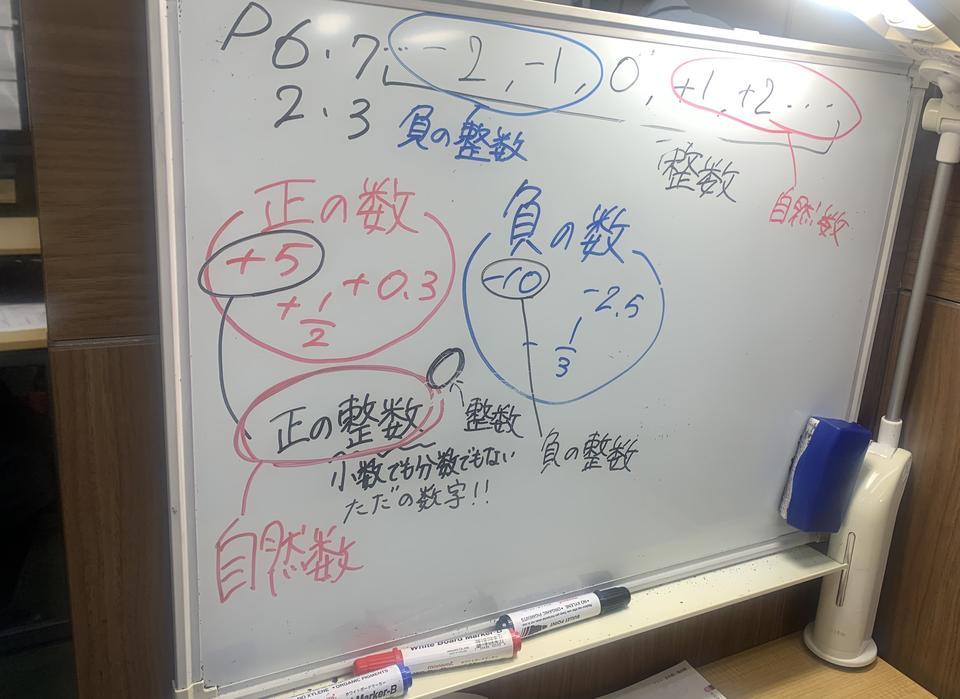 P 6.7 … -2, -1, 0, +1, +2 …
2.3
負の整数
整数
自然数
正の数
負の数
+5
+1/2
+0.3
-10
-2.5
-1/3
0
正の整数
整数
負の整数
小数でも分数でもない
ただの数字!!
自然数
White Board Marker-B
NO XYLENE • ORGANIC PIGMENTS
BULLET POINT
NO XYLENE • ORGANIC PIGMENTS
Marker-B